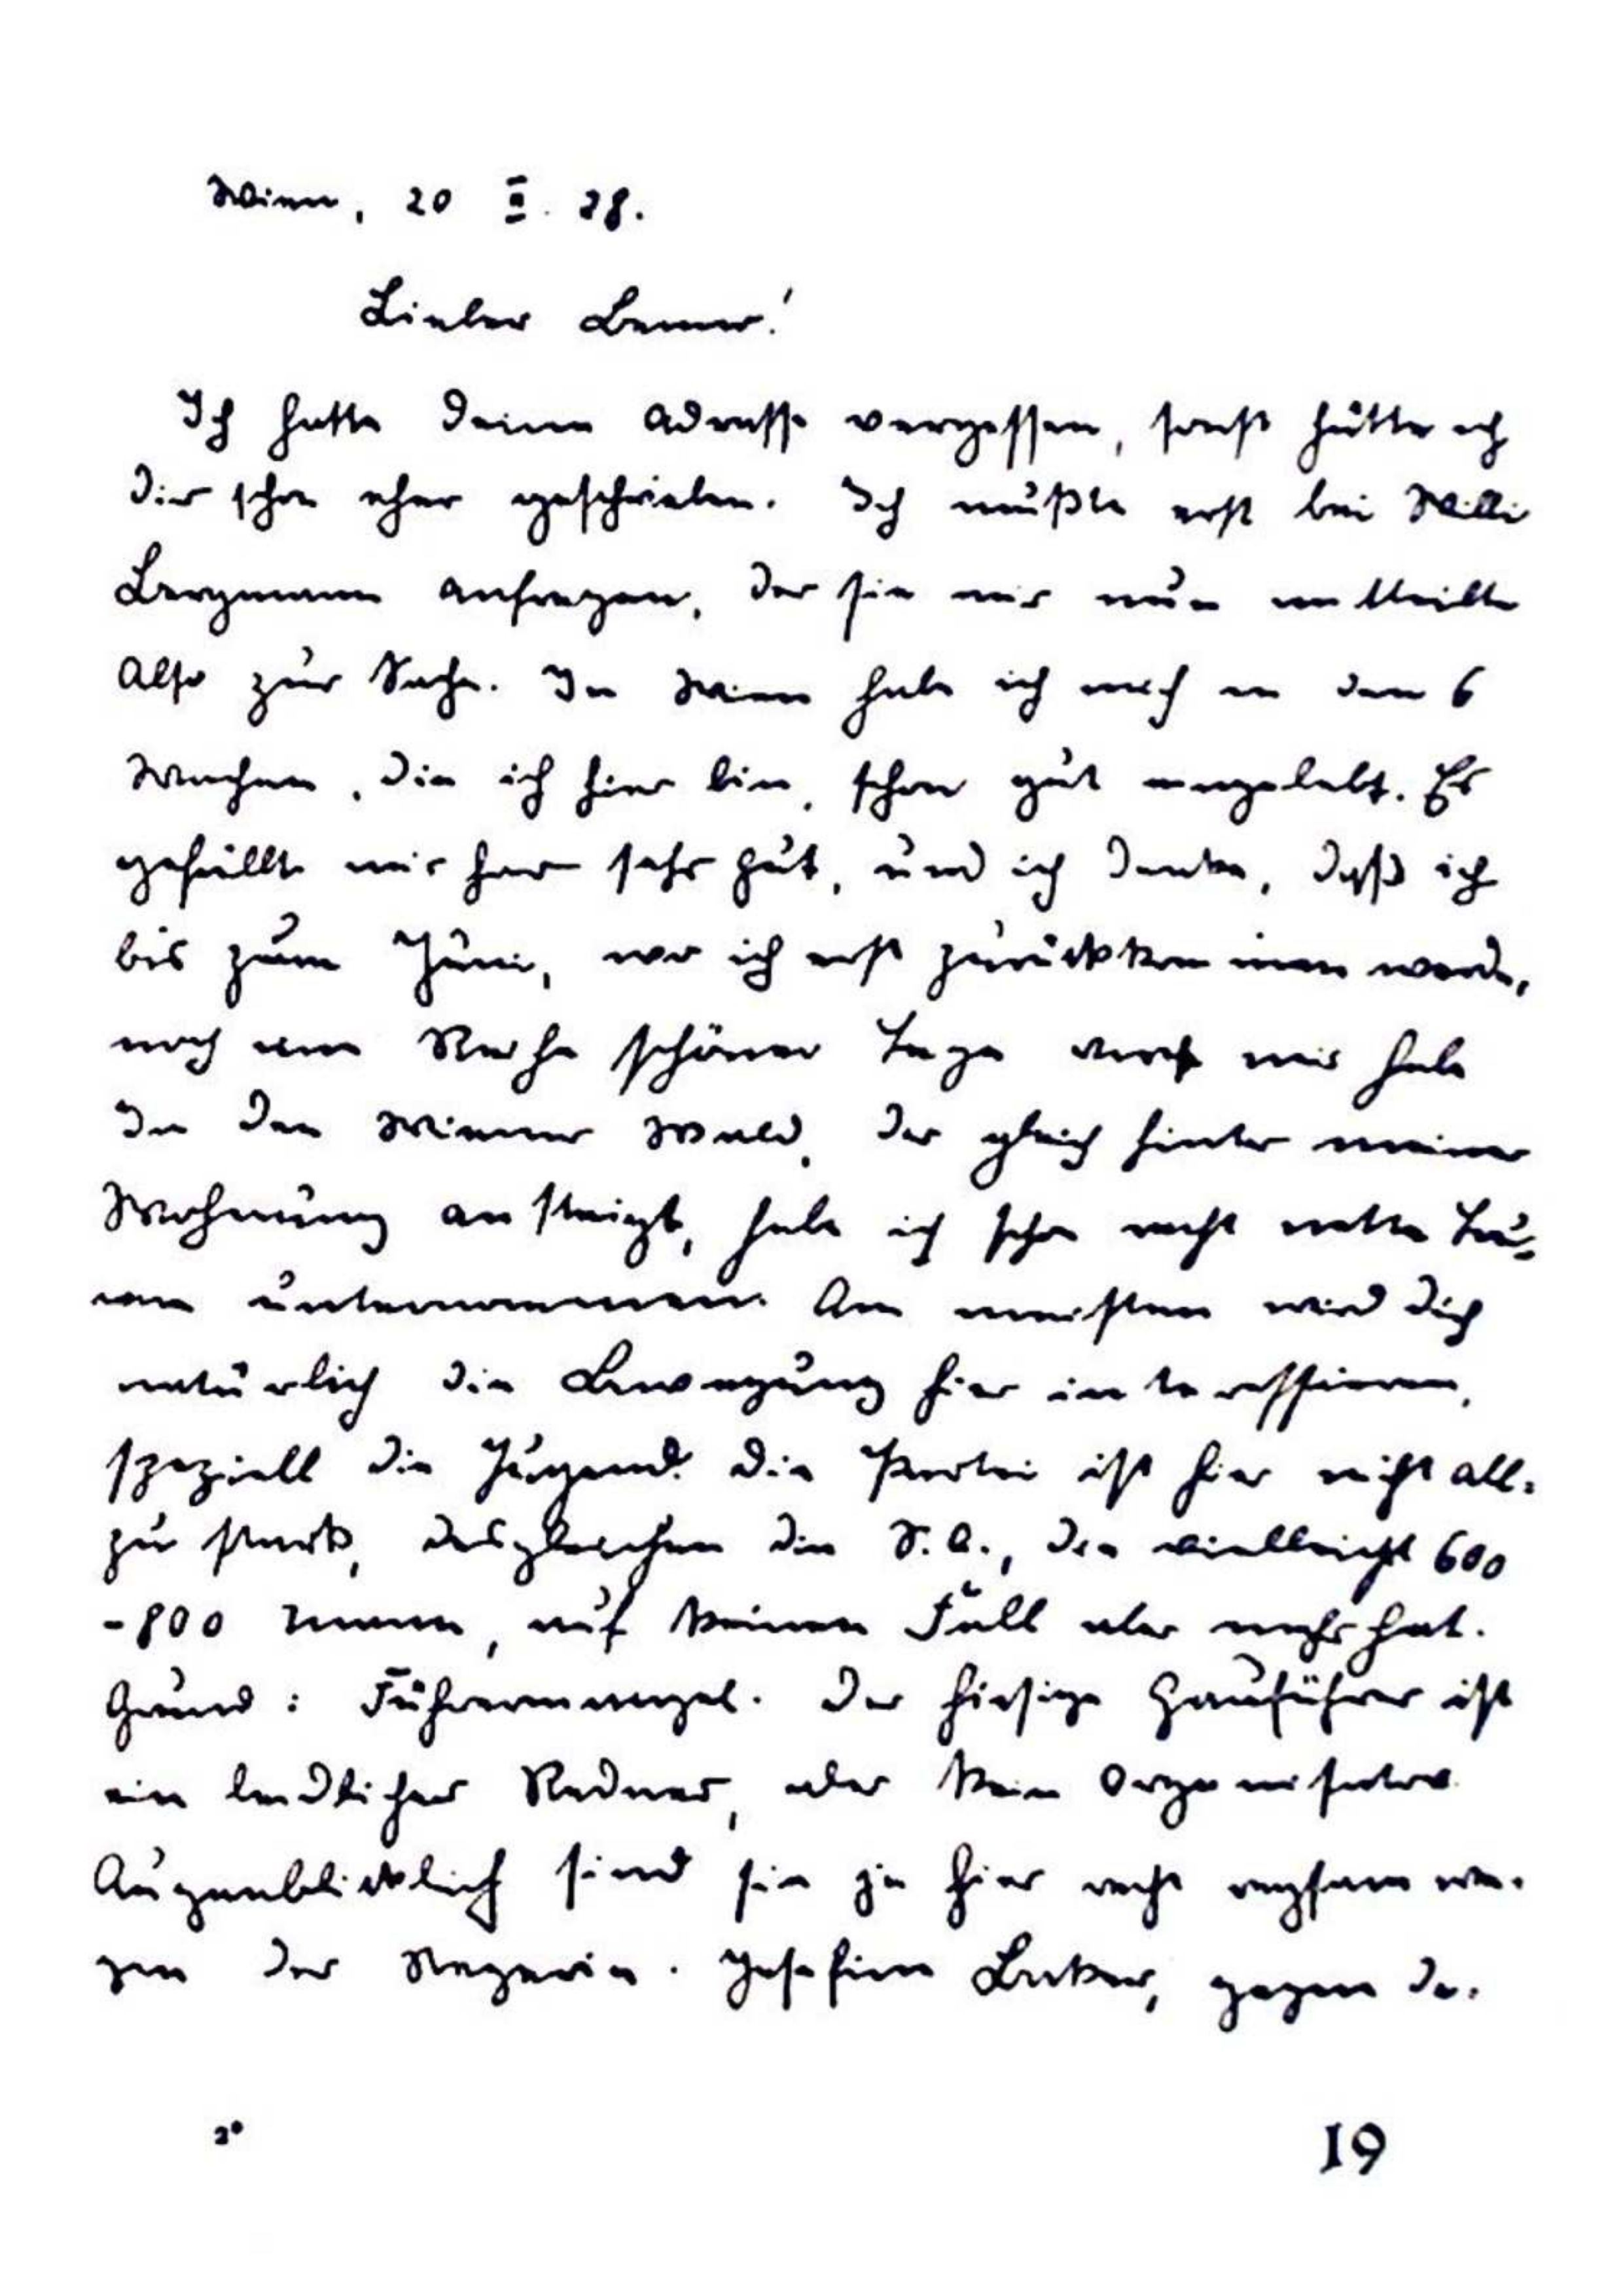 Wien, 20 II. 28.
Lieber Benner!
Ich hatte deine Adresse vergessen, sonst hätte ich
dir schon eher geschrieben. Ich mußte erst bei Willi
Bergmann anfragen, der sie mir nun mitteilte
Also zur Sache. In Wien habe ich mich in den 6
Wochen, die ich hier bin, schon gut eingelebt. Es
gefällt mir hier sehr gut, und ich denke, daß ich
bis zum Juni, wo ich erst zurückkommen werde,
noch eine Reihe schöner Tage vor mir habe
In den Wiener Wald, der gleich hinter meiner
Wohnung ansteigt, habe ich schon recht nette Tou-
ren unternommen. Am meisten wird dich
natürlich die Bewegung hier interessieren,
speziell die Jugend. Die Partei ist hier nicht all-
zu stark, desgleichen die S.A., die vielleicht 600
-800 Mann, auf keinen Fall aber mehr hat.
Grund: Führermangel. Der hiesige Gauführer ist
ein leidlicher Redner, aber kein Organisator
Augenblicklich sind sie ja hier recht regsam we-
gen der Negerin. Josefine Baker, gegen de-
2*
19